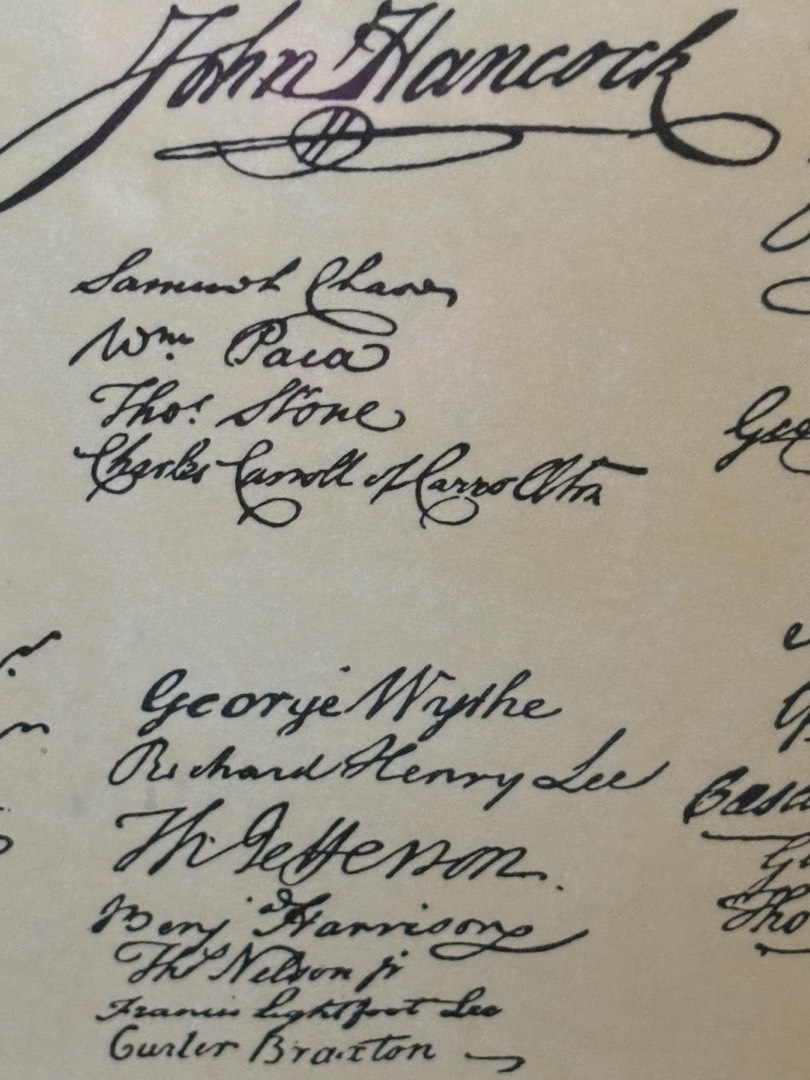 John Hancock
Samuel Chase
Wm. Paca
Thos. Stone
Charles Carroll of Carrollton
Geo
George Wythe
Richard Henry Lee
Th Jefferson.
Benj Harrison
Thos Nelson jr
Francis Lightfoot Lee
Carter Braxton
Caesa
Tho